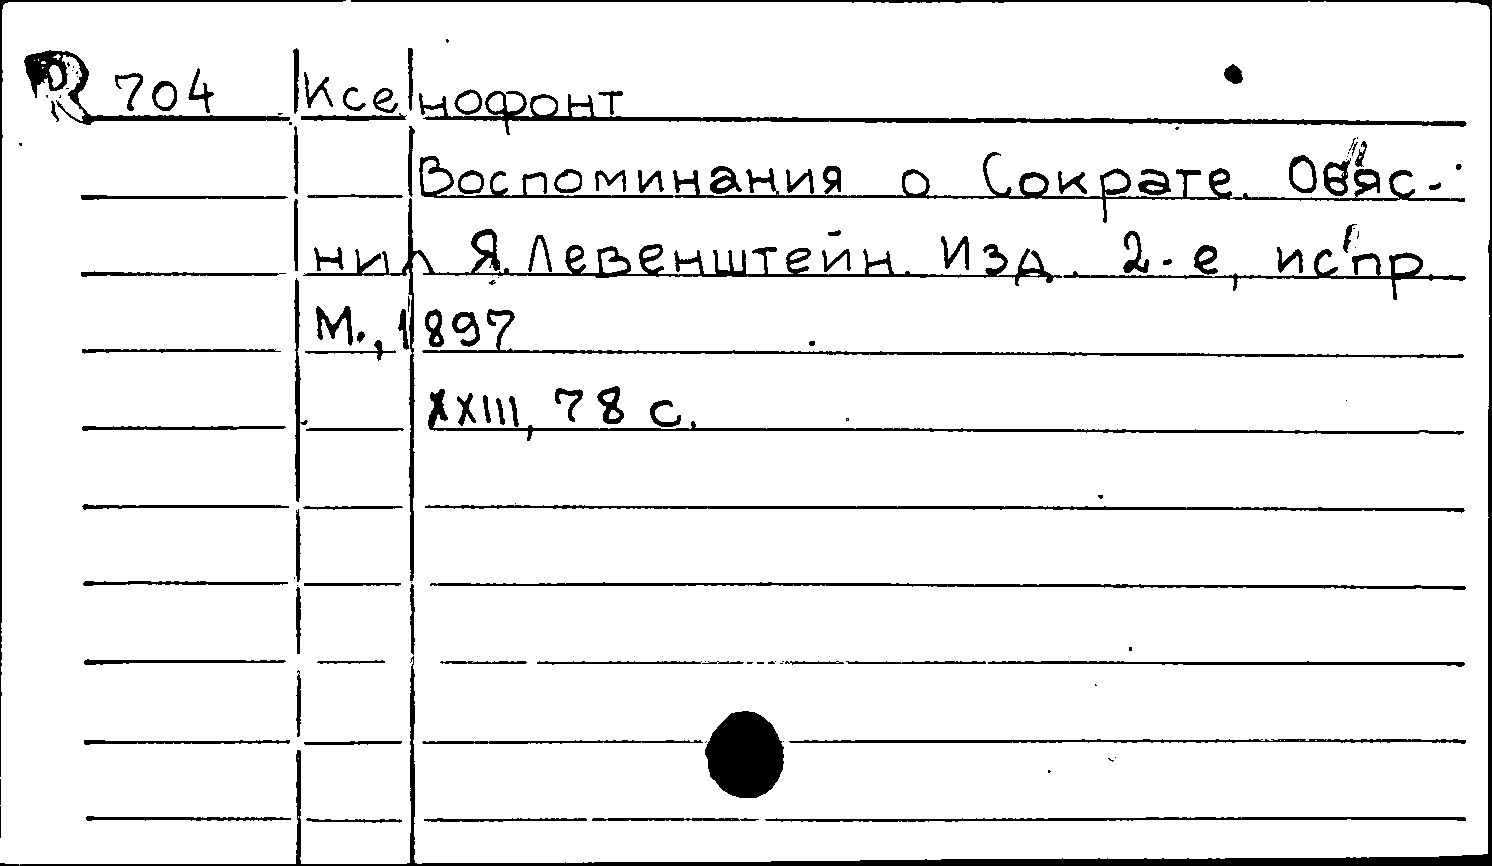 R 704 Ксенофонт
Воспоминания о Сократе. Объяс-
нил Я. Левенштейн. Изд. 2-е, испр.
М., 1897
XXIII, 78 с.